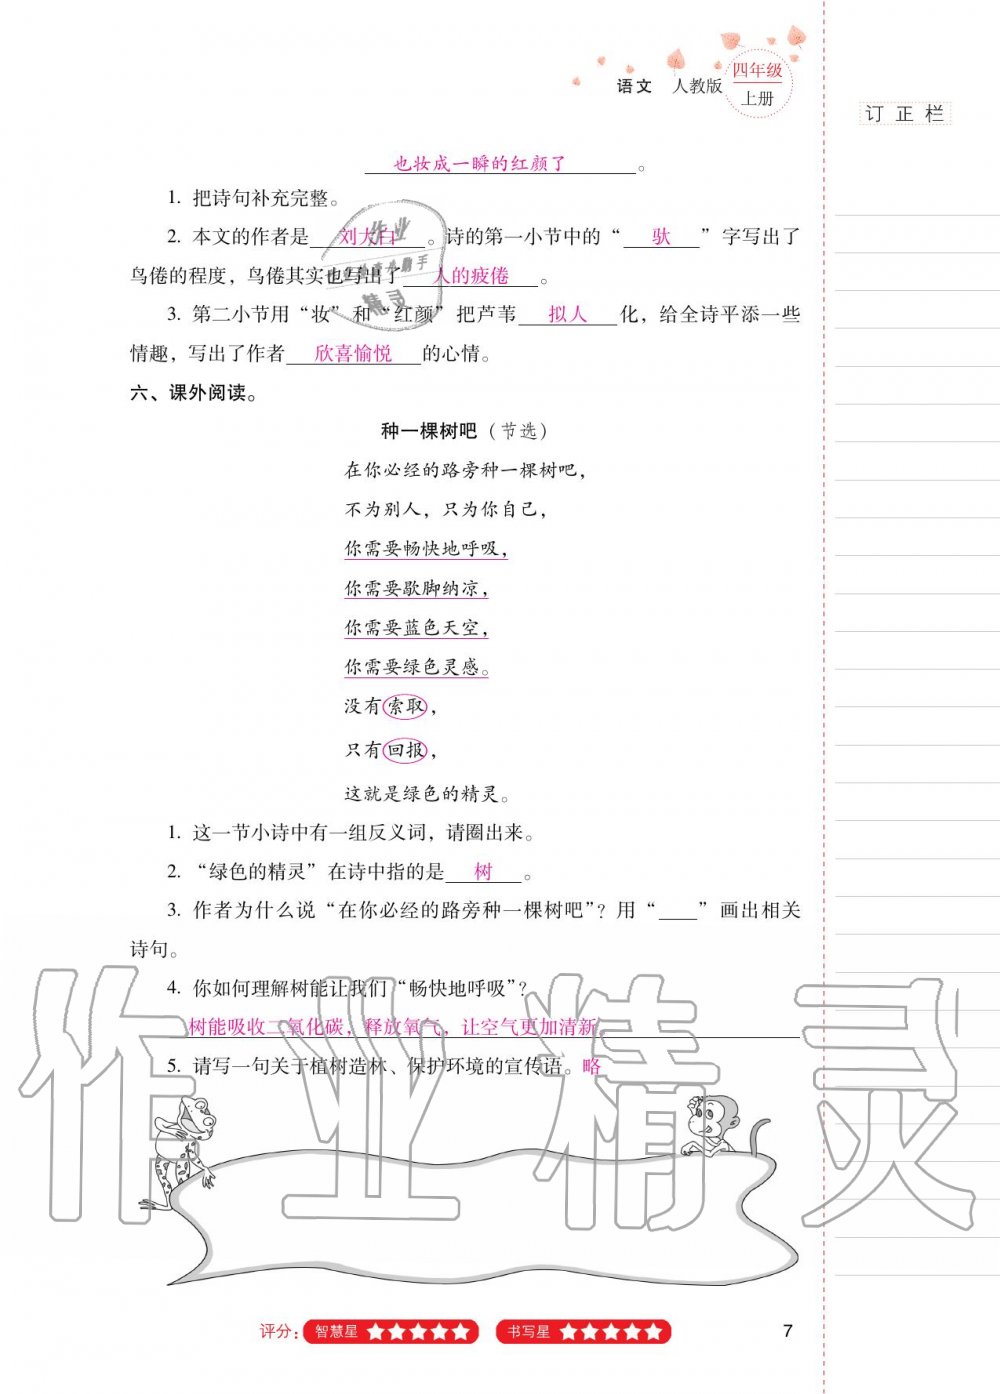 语文 人教版 四年级
上册
订正栏
也妆成一瞬的红颜了。
1. 把诗句补充完整。
2. 本文的作者是 刘大白 。诗的第一小节中的“ 驮 ”字写出了
鸟倦的程度，鸟倦其实也写出了 人的疲倦 。
3. 第二小节用“妆”和“红颜”把芦苇 拟人 化，给全诗平添一些
情趣，写出了作者 欣喜愉悦 的心情。
六、课外阅读。
种一棵树吧（节选）
在你必经的路旁种一棵树吧，
不为别人，只为你自己，
你需要畅快地呼吸，
你需要歇脚纳凉，
你需要蓝色天空，
你需要绿色灵感。
没有索取，
只有回报，
这就是绿色的精灵。
1. 这一节小诗中有一组反义词，请圈出来。
2. “绿色的精灵”在诗中指的是 树 。
3. 作者为什么说“在你必经的路旁种一棵树吧”？用“____”画出相关
诗句。
4. 你如何理解树能让我们“畅快地呼吸”？
树能吸收二氧化碳，释放氧气，让空气更加清新。
5. 请写一句关于植树造林、保护环境的宣传语。略
作业精灵
评分：智慧星 ★★★★★ 书写星 ★★★★★
7